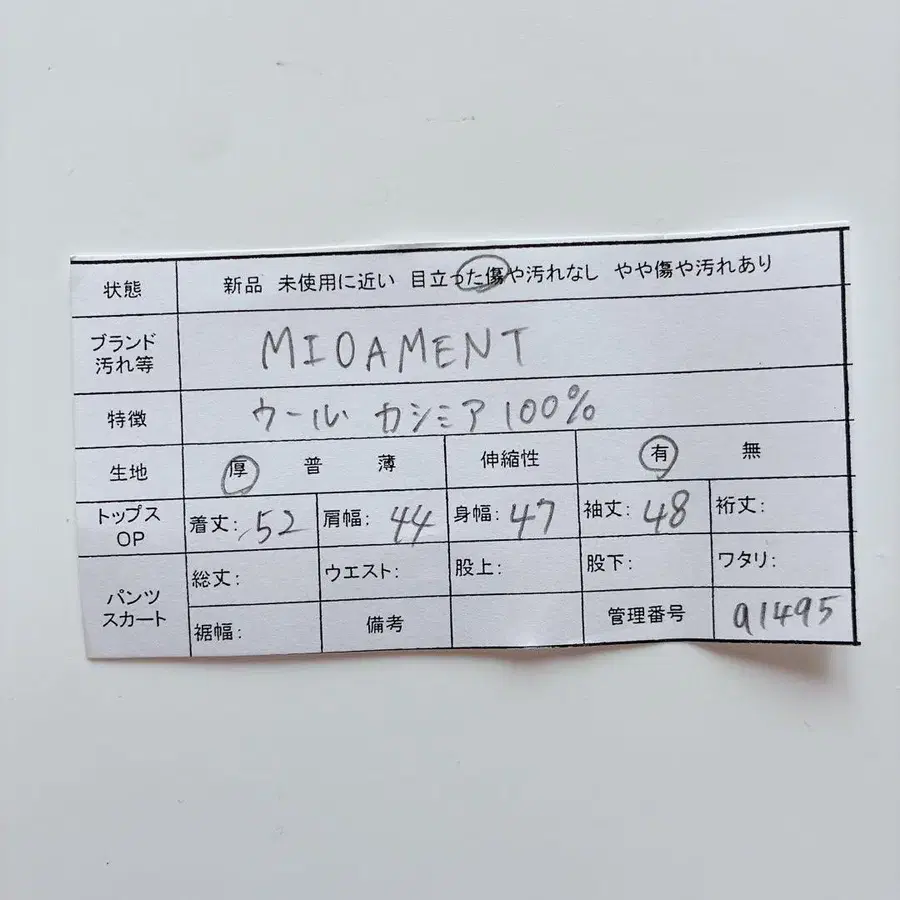 状態 新品 未使用に近い 目立った傷や汚れなし やや傷や汚れあり
ブランド
汚れ等
MIOAMENT
特徴 ウール カシミア100%
生地 厚 普 薄 伸縮性 有 無
トップス
OP
着丈:52 肩幅:44 身幅:47 袖丈:48 裄丈:
パンツ
スカート
総丈: ウエスト: 股上: 股下: ワタリ:
裾幅: 備考 管理番号 a1495